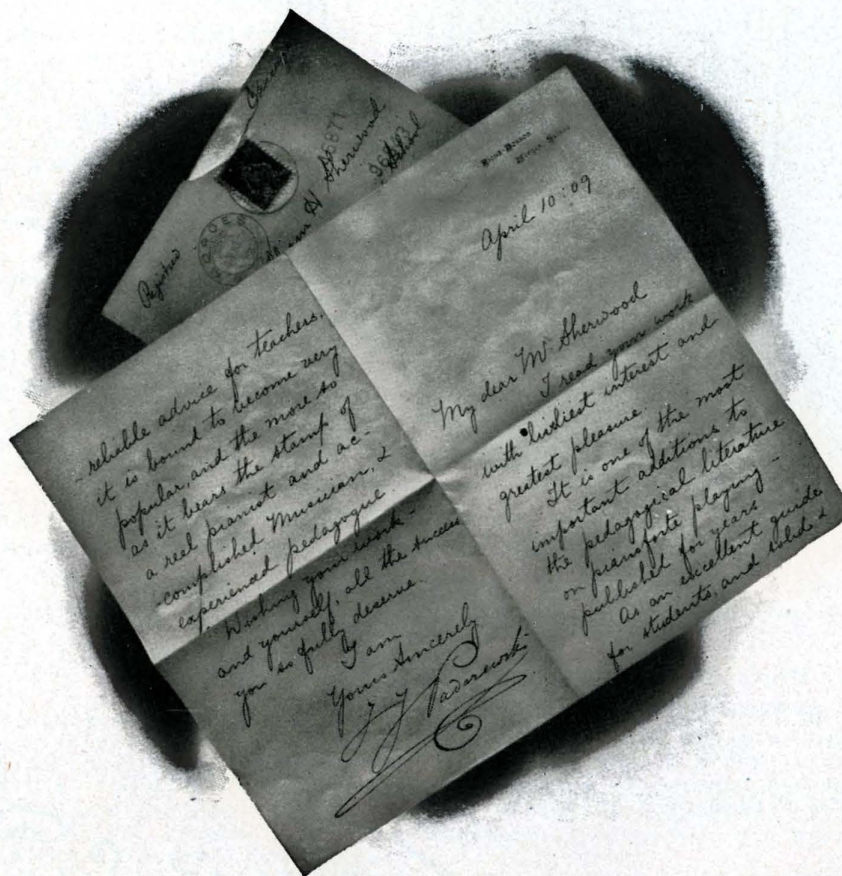 Registered
Sherwood
MORGES
April 10 : 09
My dear Mr. Sherwood
I read your work
with liveliest interest and
greatest pleasure.
It is one of the most
important additions to
the pedagogical literature
on pianoforte playing -
published for years
As an excellent guide
for students, and solid &
- reliable advice for teachers,
it is bound to become very
popular, and the more so
as it bears the stamp of
a real pianist and ac-
-complished Musician, &
experienced pedagogue.
Wishing your work -
and yourself, all the success
you so fully deserve.
I am
Yours Sincerely
I J Paderewski